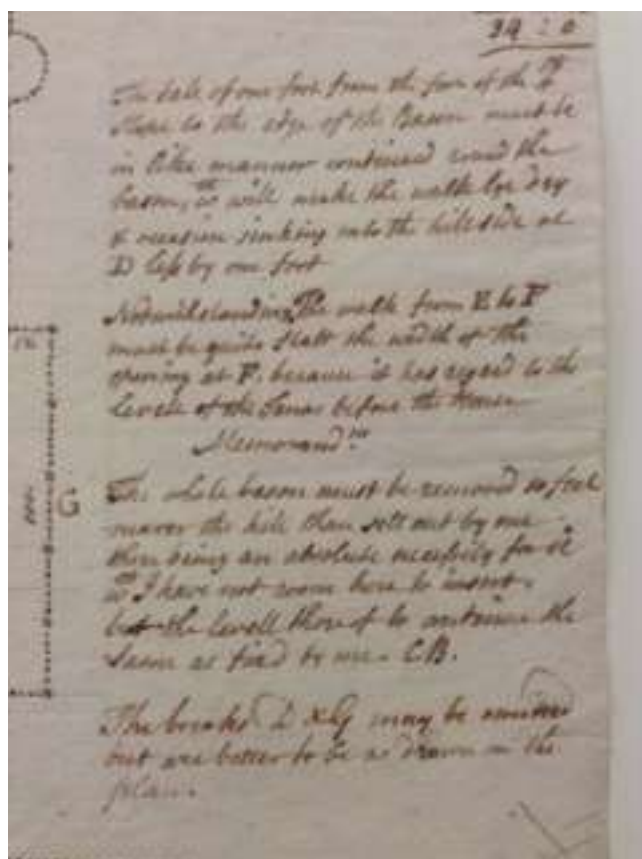 39 : 0
The fall of one foot from the foot of the
slope to the edge of the Bason must be
in like manner continued round the
bason, wch will make the walk lye dry
& occasion sinking into the hill side at
D less by one foot
Notwithstanding The walk from E to F
must be quite flatt the width of the
opening at F. because it has regard to the
levells of the before the House
Memorandm
The whole bason must be removed 10 feet
nearer the hill than sett out by me
there being an absolute necessity for it
wch I have not room here to insert.
but the levell thereof to continue the
same as fixd by me. CB.
The breaks & G may be omitted
but are better to be as drawn in the
plan.
G